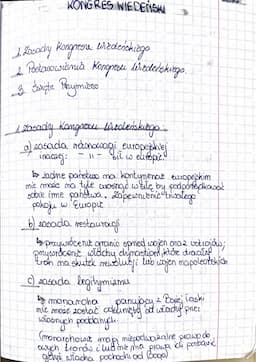 KONGRES WIEDEŃSKI
1. Zasady Kongresu Wiedeńskiego
2. Postanowienia Kongresu Wiedeńskiego.
3. Święte Przymierze
1. Zasady Kongresu Wiedeńskiego.
a) zasada równowagi europejskiej
inaczej: - 11 - sił w europie
↳ żadne państwo na kontynencie europejskim
nie może na tyle wzrosnąć w siłę by podporządkować
sobie inne państwa. Zapewnienie trwałego
pokoju w Europie.
b) zasada restauracji
↳ przywrócenie granic sprzed wojen oraz ustrojów,
przywrócenie władchy dynastiom, które straciły
tron na skutek rewolucji lub wojen napoleońskich
c) zasada legitymizmu
↳ monarcha panujący z Bożej łaski
nie może zostać odsunięty od władchy przez
własnych poddanych.
(monarchowie mają niepodważalne prawo do
swych tronów i lud nie ma prawa ich pozbawić
gdyż władcha pochodzi od Boga)